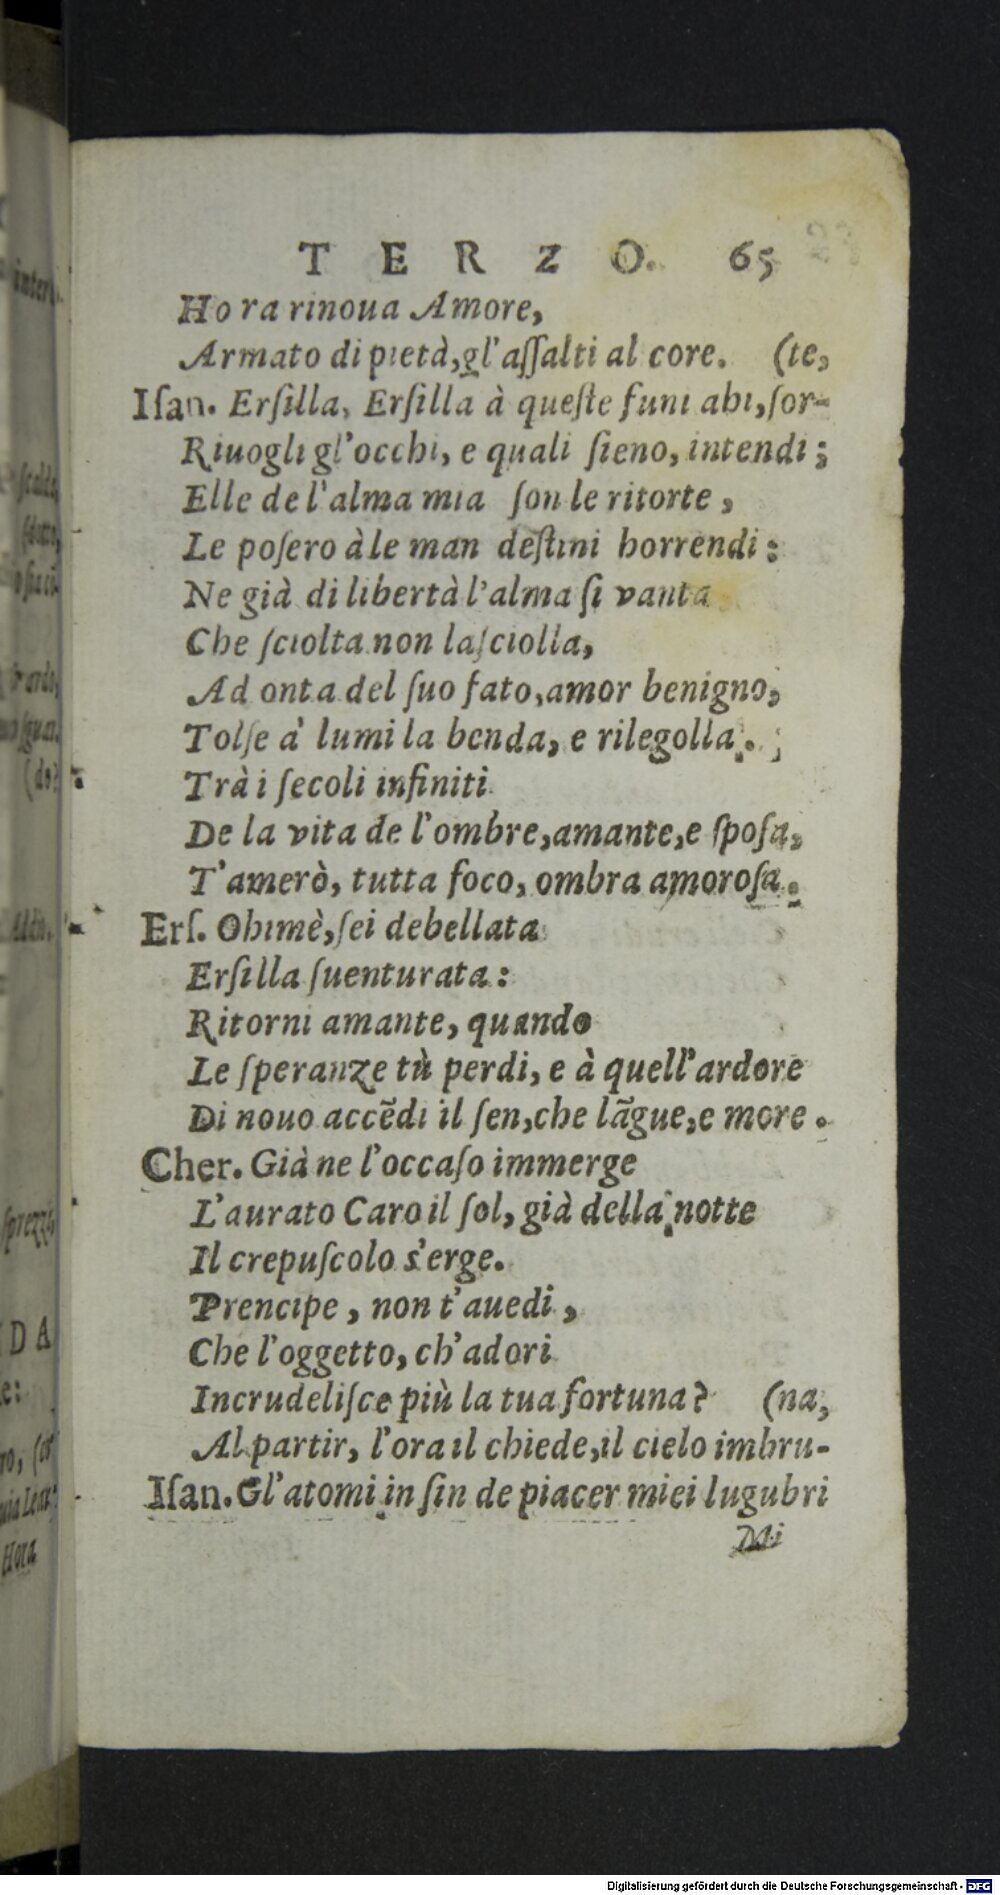 TERZO. 65
Hora rinoua Amore,
Armato di pietà, gl'aſſalti al core. (te,
Iſan. Erſilla, Erſilla à queſte funi ahi, ſor-
Riuogli gl'occhi, e quali ſieno, intendi;
Elle de l'alma mia ſon le ritorte,
Le poſero à le man deſtini horrendi:
Ne già di libertà l'alma ſi vanta
Che ſciolta non laſciolla,
Ad onta del ſuo fato, amor benigno,
Tolſe a' lumi la benda, e rilegolla.
Trà i ſecoli infiniti
De la vita de l'ombre, amante, e ſpoſa,
T'amerò, tutta foco, ombra amoroſa.
Erſ. Ohimè, ſei debellata
Erſilla ſuenturata:
Ritorni amante, quando
Le ſperanze tù perdi, e à quell'ardore
Di nouo accẽdi il ſen, che lãgue, e more.
Cher. Già ne l'occaſo immerge
L'aurato Caro il ſol, già della notte
Il crepuſcolo s'erge.
Prencipe, non t'auedi,
Che l'oggetto, ch'adori
Incrudeliſce più la tua fortuna? (na,
Al partir, l'ora il chiede, il cielo imbru-
Iſan. Gl'atomi in ſin de piacer miei lugubri
Mi
Digitalisierung gefördert durch die Deutsche Forschungsgemeinschaft - DFG